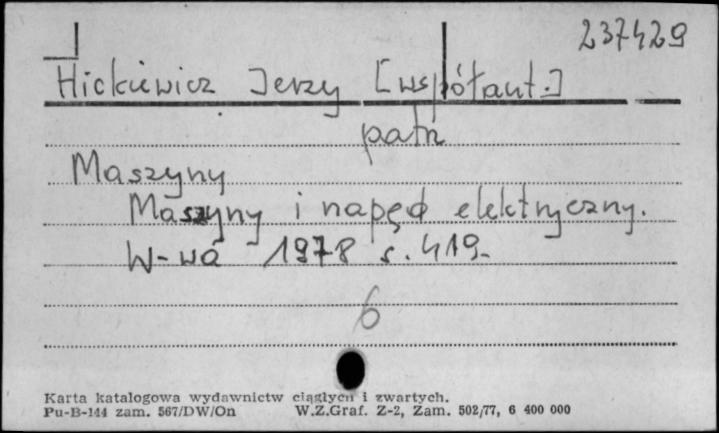 237429
Hickiewicz Jerzy [współaut.]
patrz
Maszyny
Maszyny i napęd elektryczny.
W-wa 1978 s. 419.
6
Karta katalogowa wydawnictw ciągłych i zwartych.
Pu-B-144 zam. 567/DW/On W.Z.Graf. Z-2, Zam. 502/77, 6 400 000